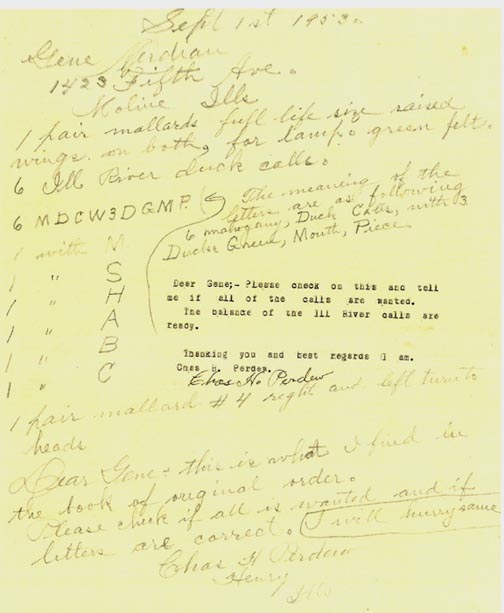 Sept 1st 1953.
Gene
1423 Fifth Ave.
Moline Ills
1 pair mallards full life size raised
wings. on both, for lamp. green felt.
6 Ill River duck calls.
6 MDCW3DGMP.
The meaning of the
letters are as following
6 mahogany, Duck Calls, with 3
Ducks Green, Mouth, Piece.
1 with M
1 " S
1 " H
1 " A
1 " B
1 " C
Dear Gene;- Please check on this and tell
me if all of the calls are wanted.
The balance of the Ill River calls are
ready.
Thanking you and best regards I am.
Chas H. Perdew.
Chas H. Perdew
1 pair mallard #4 right and left turn to
heads
Dear Gene - this is what I find in
the book of original order.
Please check if all is wanted and if
letters are correct. I will hurry same
Chas H Perdew
Henry
Ills